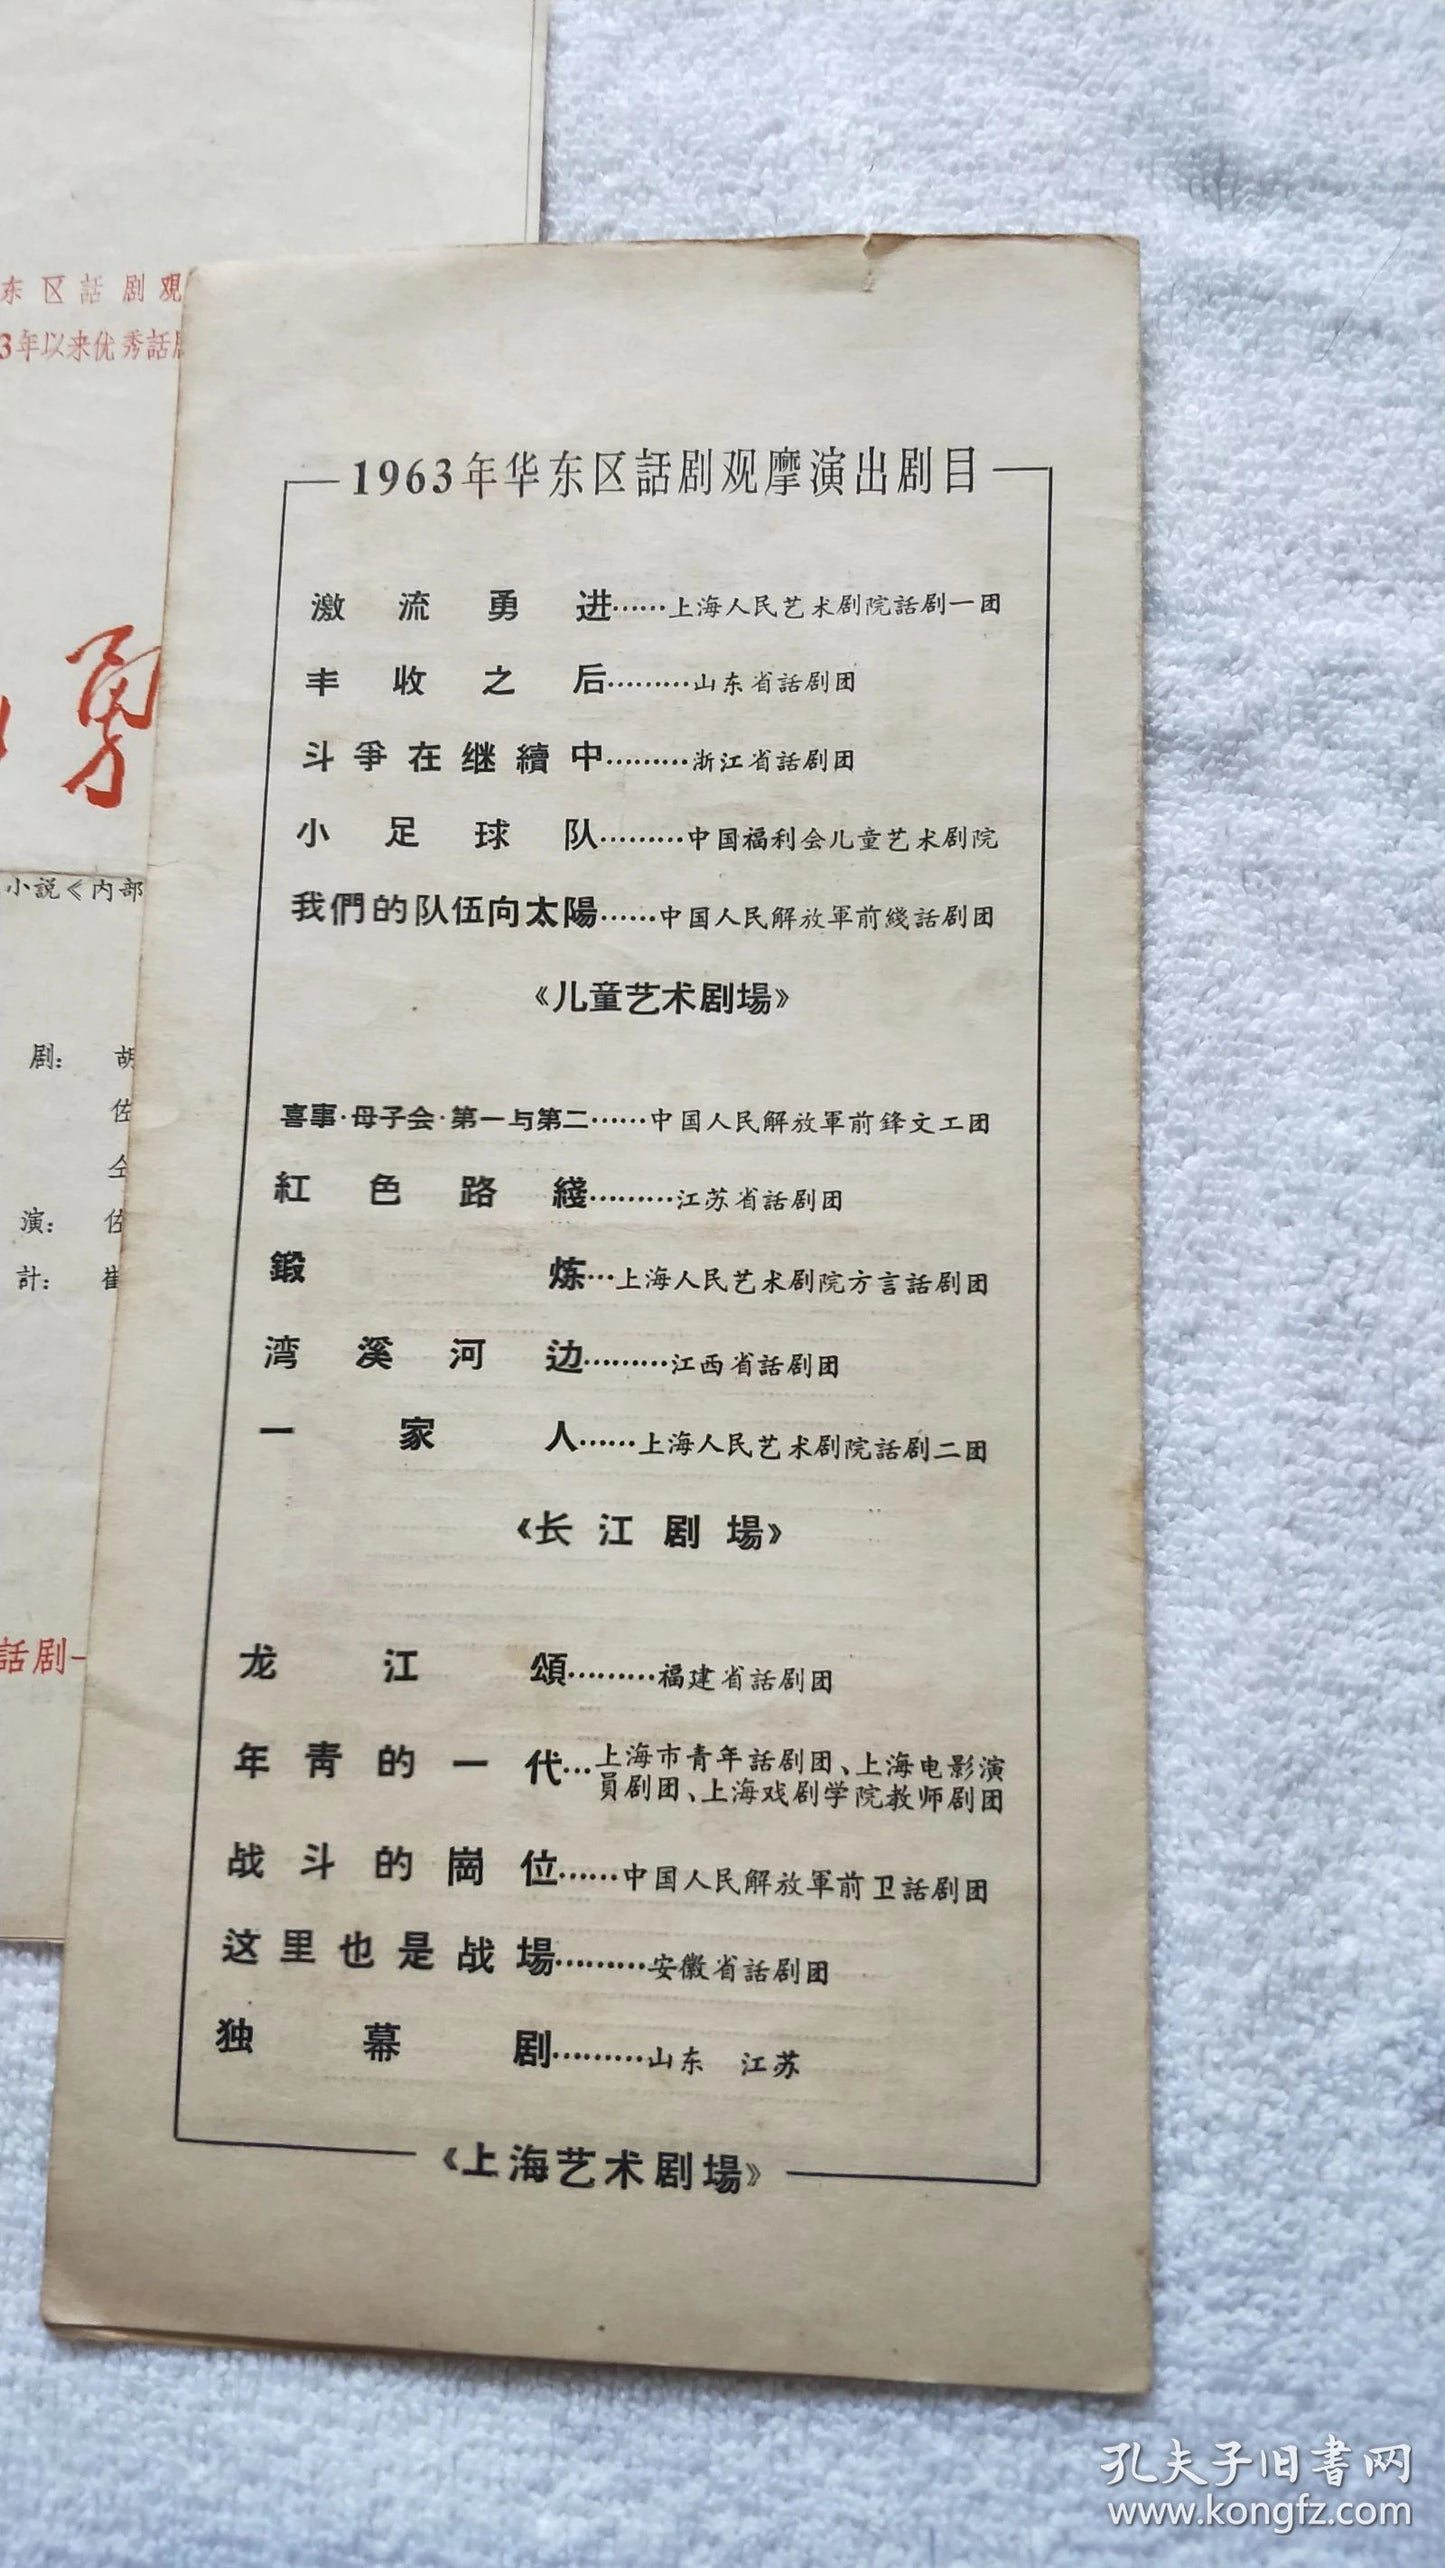 东区話剧观
3年以来优秀話
勇
小説《内部
剧： 胡
佐
仝
演： 佐
計： 崔
話剧一
1963年华东区話剧观摩演出剧目
激流勇进……上海人民艺术剧院話剧一团
丰收之后………山东省話剧团
斗爭在继續中………浙江省話剧团
小足球队………中国福利会儿童艺术剧院
我們的队伍向太陽……中国人民解放軍前綫話剧团
《儿童艺术剧場》
喜事·母子会·第一与第二……中国人民解放軍前鋒文工团
紅色路綫………江苏省話剧团
鍛炼…上海人民艺术剧院方言話剧团
湾溪河边………江西省話剧团
一家人……上海人民艺术剧院話剧二团
《长江剧場》
龙江頌………福建省話剧团
年青的一代…上海市青年話剧团、上海电影演
員剧团、上海戏剧学院教师剧团
战斗的崗位……中国人民解放軍前卫話剧团
这里也是战場………安徽省話剧团
独幕剧………山东 江苏
《上海艺术剧場》
孔夫子旧書网
www.kongfz.com